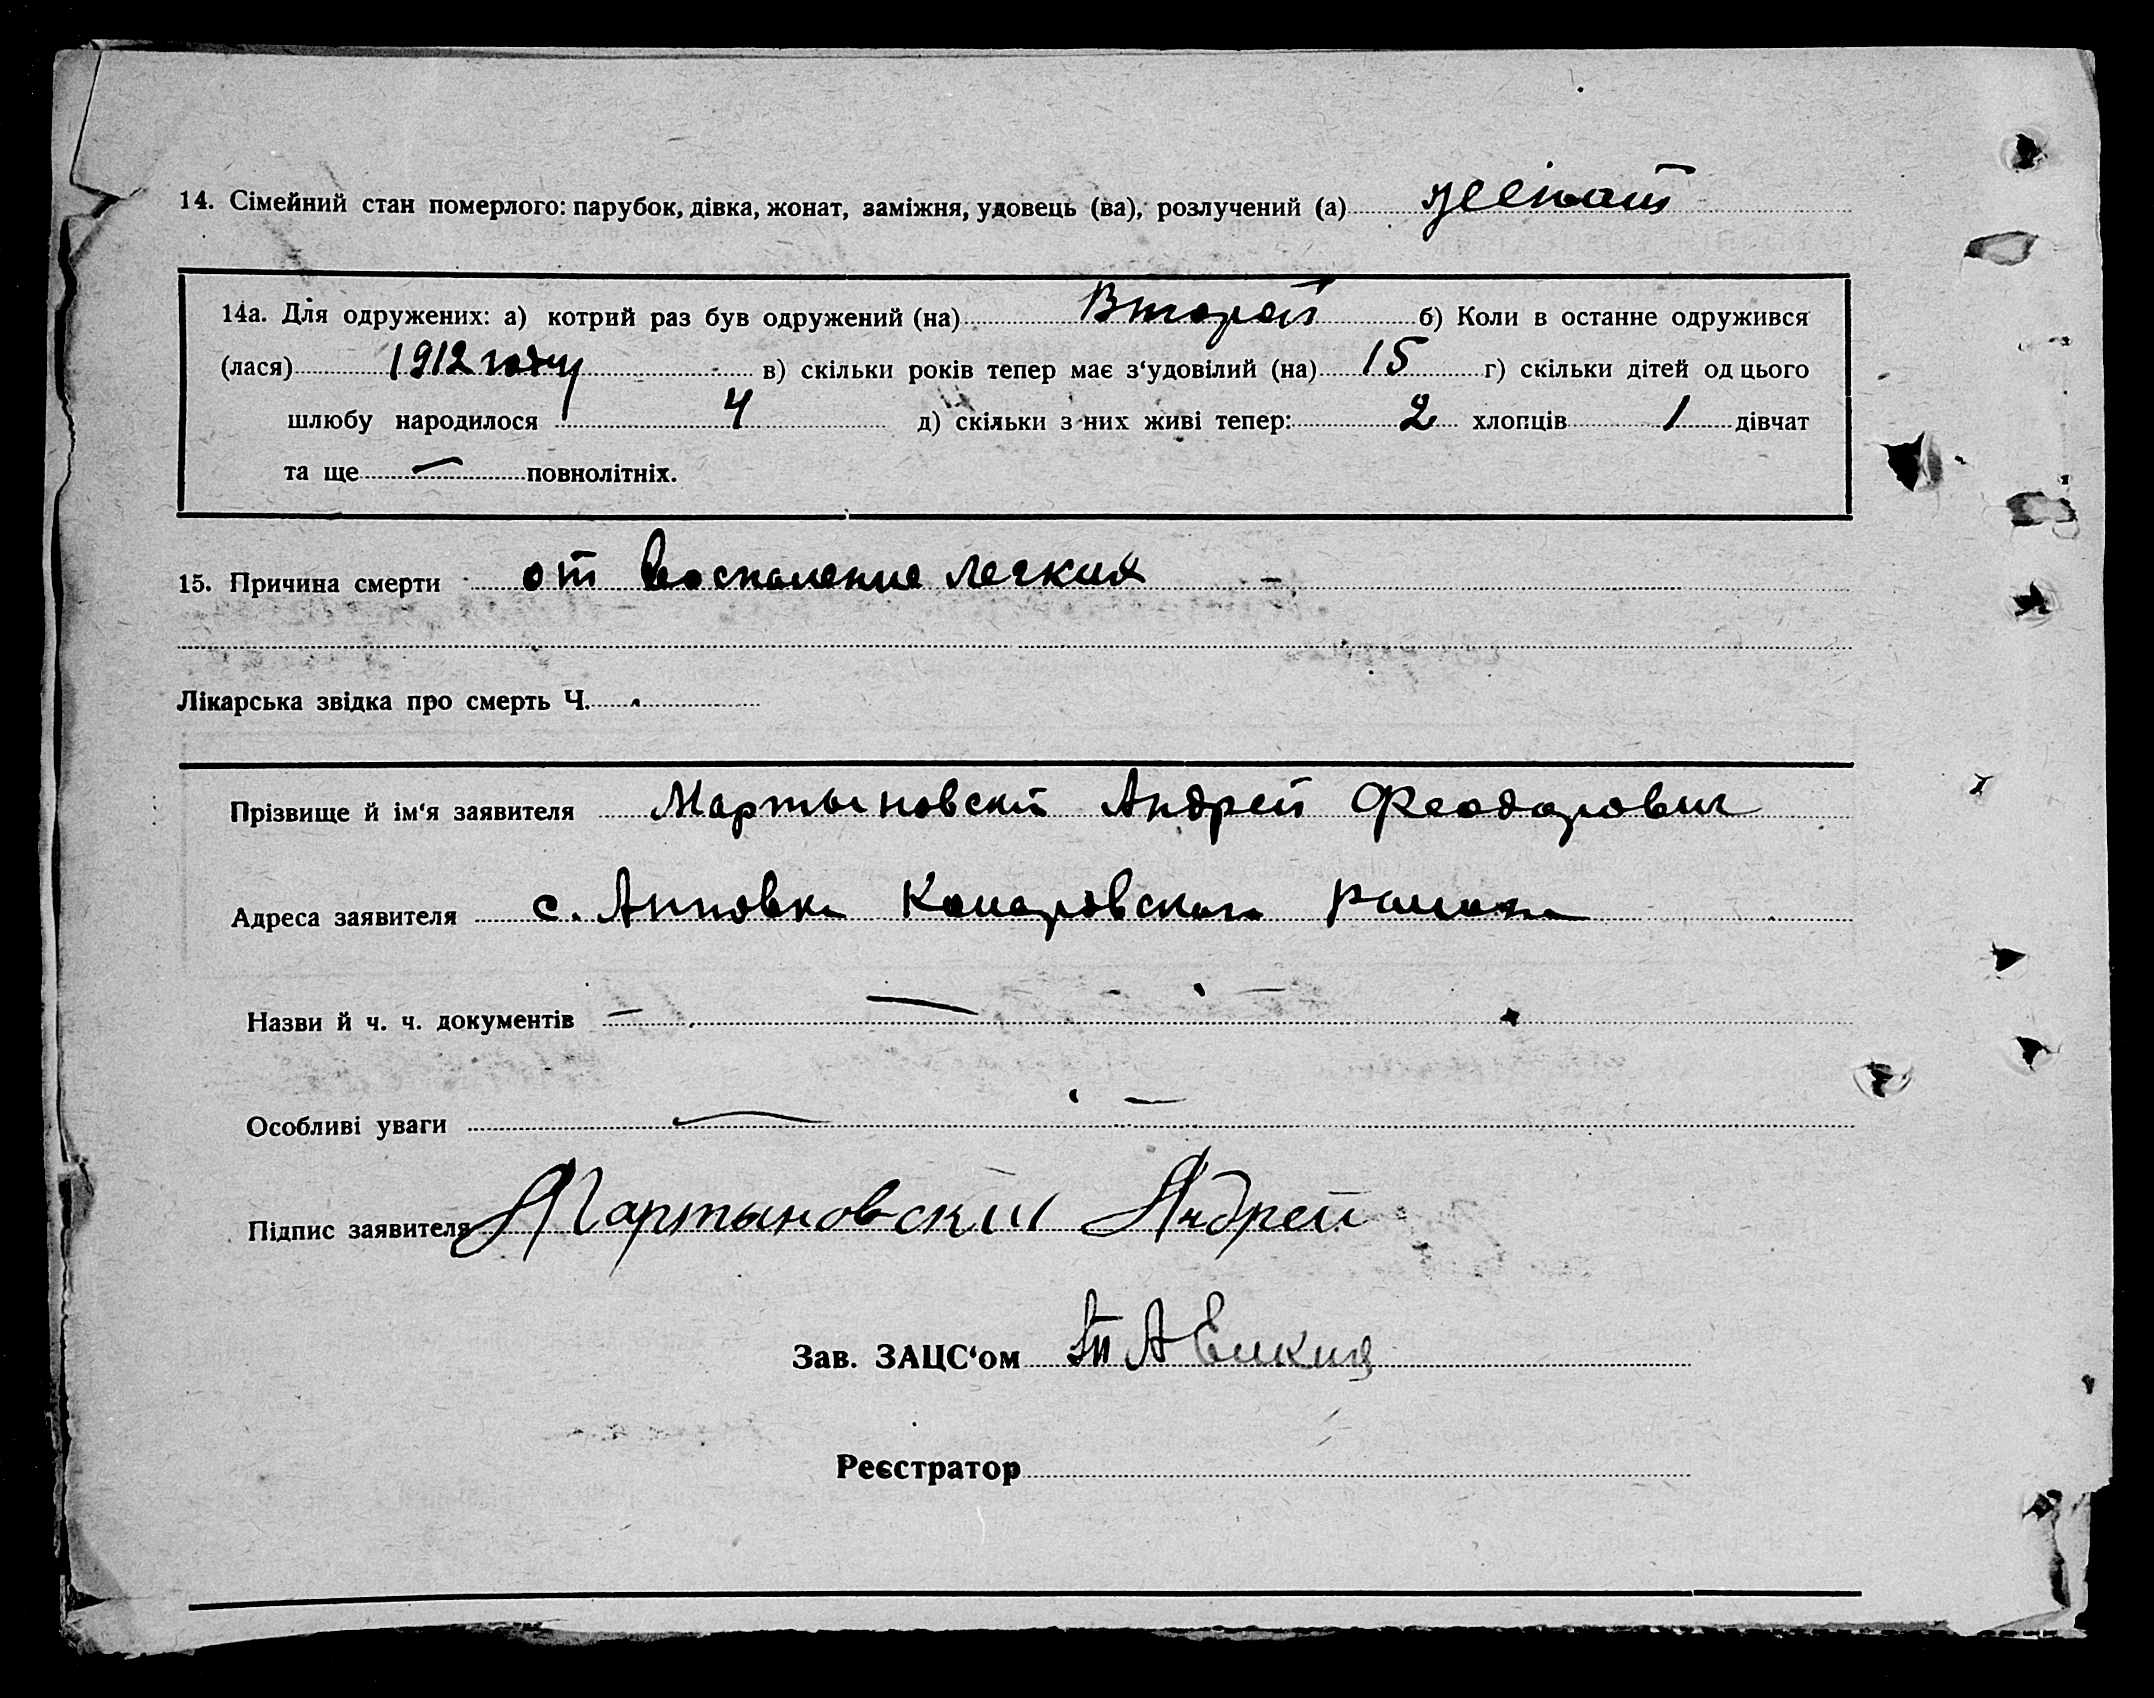 14. Сімейний стан померлого: парубок, дівка, жонат, заміжня, удовець (ва), розлучений (а) женат
14а. Для одружених: а) котрий раз був одружений (на) Второй б) Коли в останне одружився
(лася) 1912 году в) скільки років тепер має з'удовілий (на) 15 г) скільки дітей од цього
шлюбу народилося 4 д) скільки з них живі тепер: 2 хлопців 1 дівчат
та ще — повнолітніх.
15. Причина смерти от воспаление легких
Лікарська звідка про смерть Ч.
Прізвище й ім'я заявителя Мартыновский Андрей Феодорович
Адреса заявителя с. Анновка района
Назви й ч. ч. документів —
Особливі уваги —
Підпис заявителя Мартыновский Андрей
Зав. ЗАЦС'ом
Реєстратор